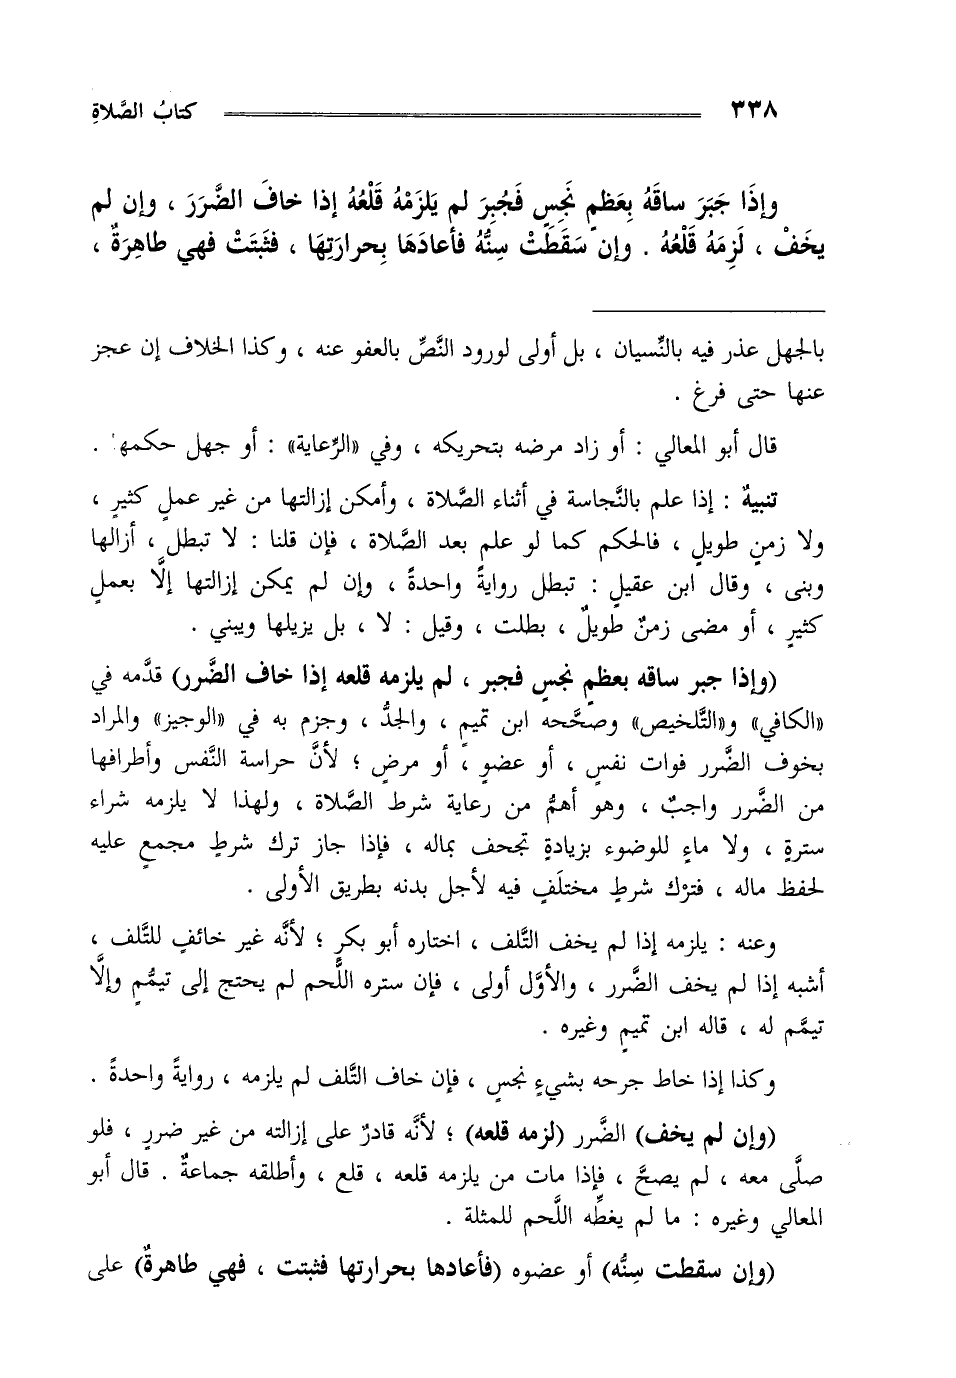 ٣٣٨ كتابُ الصَّلاةِ
وإذَا جَبَرَ ساقَهُ بِعَظمٍ نَجِسٍ فَجُبِرَ لم يَلزَمْهُ قَلْعُهُ إذا خافَ الضَّرَرَ ، وإن لم
يخَفْ ، لَزِمَهُ قَلْعُهُ . وإن سَقَطَتْ سِنُّهُ فأعادَهَا بِحرارَتِهَا ، فثَبتَتْ فهي طاهِرَةٌ ،
بالجهل عذر فيه بالنِّسيان ، بل أولى لورود النَّصِّ بالعفو عنه ، وكذا الخلاف إن عجز
عنها حتى فرغ .
قال أبو المعالي : أو زاد مرضه بتحريكه ، وفي «الرِّعاية» : أو جهل حكمها .
تنبيهٌ : إذا علم بالنَّجاسة في أثناء الصَّلاة ، وأمكن إزالتها من غير عملٍ كثيرٍ ،
ولا زمنٍ طويلٍ ، فالحكم كما لو علم بعد الصَّلاة ، فإن قلنا : لا تبطل ، أزالها
وبنى ، وقال ابن عقيلٍ : تبطل روايةً واحدةً ، وإن لم يمكن إزالتها إلَّا بعملٍ
كثيرٍ ، أو مضى زمنٌ طويلٌ ، بطلت ، وقيل : لا ، بل يزيلها ويبني .
(وإذا جبر ساقه بعظمٍ نجسٍ فجبر ، لم يلزمه قلعه إذا خاف الضَّرر) قدَّمه في
«الكافي» و«التَّلخيص» وصحَّحه ابن تميمٍ ، والجدُّ ، وجزم به في «الوجيز» والمراد
بخوف الضَّرر فوات نفسٍ ، أو عضوٍ ، أو مرضٍ ؛ لأنَّ حراسة النَّفس وأطرافها
من الضَّرر واجبٌ ، وهو أهمُّ من رعاية شرط الصَّلاة ، ولهذا لا يلزمه شراء
سترةٍ ، ولا ماءٍ للوضوء بزيادةٍ تجحف بماله ، فإذا جاز ترك شرطٍ مجمعٍ عليه
لحفظ ماله ، فترْك شرطٍ مختلَفٍ فيه لأجل بدنه بطريق الأولى .
وعنه : يلزمه إذا لم يخف التَّلف ، اختاره أبو بكرٍ ؛ لأنَّه غير خائفٍ للتَّلف ،
أشبه إذا لم يخف الضَّرر ، والأوَّل أولى ، فإن ستره اللَّحم لم يحتج إلى تيمُّمٍ وإلَّا
تيمَّم له ، قاله ابن تميمٍ وغيره .
وكذا إذا خاط جرحه بشيءٍ نجسٍ ، فإن خاف التَّلف لم يلزمه ، روايةً واحدةً .
(وإن لم يخف) الضَّرر (لزمه قلعه) ؛ لأنَّه قادرٌ على إزالته من غير ضررٍ ، فلو
صلَّى معه ، لم يصحَّ ، فإذا مات من يلزمه قلعه ، قلع ، وأطلقه جماعةٌ . قال أبو
المعالي وغيره : ما لم يغطِّه اللَّحم للمثلة .
(وإن سقطت سِنُّه) أو عضوه (فأعادها بحرارتها فثبتت ، فهي طاهرةٌ) على